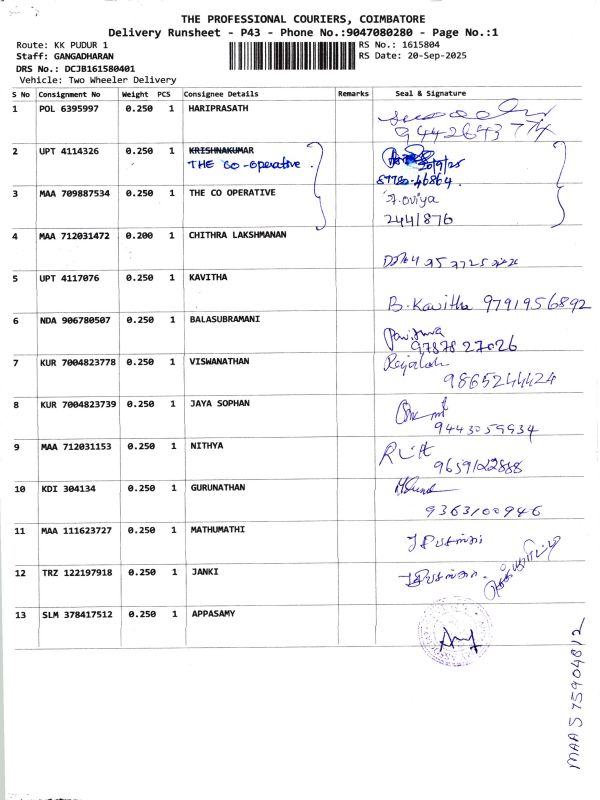 THE PROFESSIONAL COURIERS, COIMBATORE
Delivery Runsheet - P43 - Phone No.:9047080280 - Page No.:1
Route: KK PUDUR 1 RS No.: 1615804
Staff: GANGADHARAN RS Date: 20-Sep-2025
DRS No.: DCJB161580401
Vehicle: Two Wheeler Delivery
S No Consignment No Weight PCS Consignee Details Remarks Seal & Signature
1 POL 6395997 0.250 1 HARIPRASATH
9442643774
2 UPT 4114326 0.250 1 KRISHNAKUMAR
THE CO-operative. 20/9/25
87780-46864.
3 MAA 709887534 0.250 1 THE CO OPERATIVE J.Oviya
2441876
4 MAA 712031472 0.200 1 CHITHRA LAKSHMANAN
5 UPT 4117076 0.250 1 KAVITHA
B.Kavitha 9791956892
6 NDA 906780507 0.250 1 BALASUBRAMANI
9787827026
7 KUR 7004823778 0.250 1 VISWANATHAN
9865244424
8 KUR 7004823739 0.250 1 JAYA SOPHAN
9443059934
9 MAA 712031153 0.250 1 NITHYA
9659122888
10 KDI 304134 0.250 1 GURUNATHAN
9363100946
11 MAA 111623727 0.250 1 MATHUMATHI
12 TRZ 122197918 0.250 1 JANKI
13 SLM 378417512 0.250 1 APPASAMY
MAA 575904812